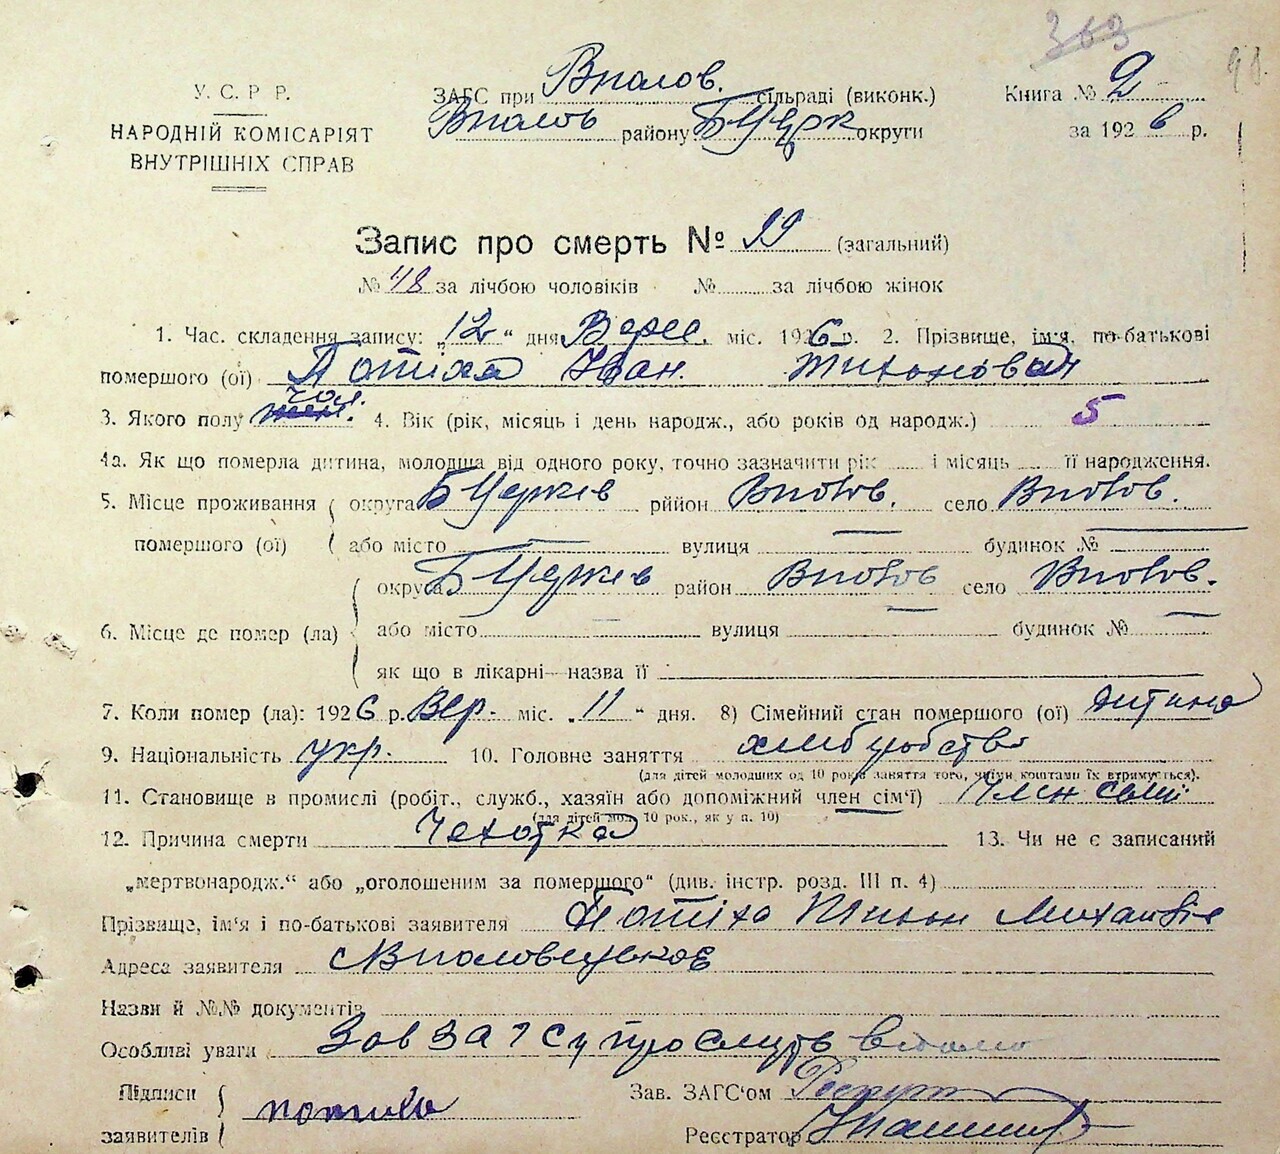 363
98.
У. С. Р. Р.
НАРОДНІЙ КОМІСАРІЯТ
ВНУТРІШНІХ СПРАВ
ЗАГС при Вполов. сільраді (виконк.)
Вполов району БЦерк округи
Книга № 2
за 1926 р.
Запис про смерть № 99 (загальний)
№ 48 за лічбою чоловіків № за лічбою жінок
1. Час складення запису: „12“ дня Верес. міс. 1926 р. 2. Прізвище, ім'я, по-батькові
помершого (ої) Потіха Іван Тихонович
3. Якого полу жен. чол. 4. Вік (рік, місяць і день народж., або років од народж.) 5
4а. Як що померла дитина, молодша від одного року, точно зазначити рік і місяць її народження.
5. Місце проживання округа БЦерків рййон Вполов. село Вполов.
помершого (ої) або місто вулиця будинок №
округа БЦерків район Вполов село Вполов.
6. Місце де помер (ла) або місто вулиця будинок №
як що в лікарні—назва її
7. Коли помер (ла): 1926 р. Вер. міс. „11“ дня. 8) Сімейний стан помершого (ої) дитина
9. Національність укр. 10. Головне заняття хліборобство
(для дітей молодших од 10 років заняття того, чиїми коштами їх втримується).
11. Становище в промислі (робіт., служб., хазяїн або допоміжний член сім'ї) Член сімї
(для дітей мол. 10 рок., як у п. 10)
12. Причина смерти Чахотка 13. Чи не є записаний
„мертвонародж.“ або „оголошеним за помершого“ (див. інстр. розд. III п. 4)
Прізвище, ім'я і по-батькові заявителя Потіха Тихон Михайлов
Адреса заявителя
Назви й №№ документів
Особливі уваги Зав Загсу про смерть відомо
Підписи
заявителів потиха
Зав. ЗАГС'ом
Реєстратор